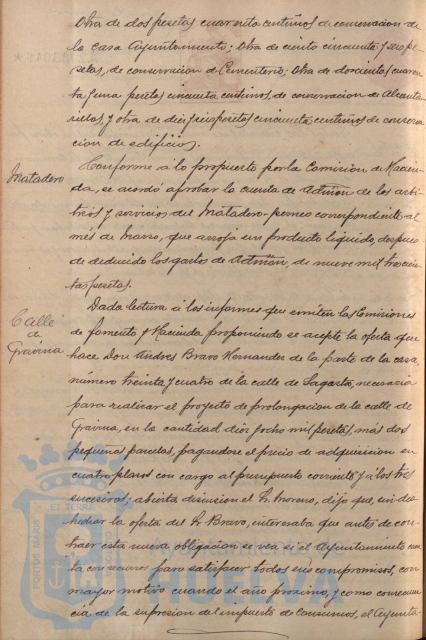 Otra de dos pesetas cuarenta centimos de conservacion de
la casa Ayuntamiento; Otra de ciento cincuenta y seis pe-
setas, de conservacion de Cementerio; Otra de doscientas cuaren
ta y una pesetas cincuenta centimos, de conservacion de Alcanta-
rillas, y otra de diez y seis pesetas cincuenta centimos de conserva
cion de edificios.
Matadero
Conforme á lo propuesto por la Comision de Hacien-
da, se acordó aprobar la cuenta de Admon de los arbi-
trios y servicios del Matadero-perneo correspondiente al
mes de Marzo, que arroja un producto líquido, despues
de deducido los gastos de Admon, de nueve mil trescien
tas pesetas.
Calle
de
Gravina
Dada lectura á los informes que emiten las Comisiones
de fomento y Hacienda proponiendo se acepte la oferta que
hace Don Andres Bravo Hernandez de la parte de la casa
número treinta y cuatro de la calle de Sagasta, necesaria
para realizar el proyecto de prolongacion de la calle de
Gravina, en la cantidad diez y ocho mil pesetas, más dos
pequeñas parcelas, pagandose el precio de adquisicion en
cuatro plazos con cargo al presupuesto corriente y á los tres
sucesivos; abierta discusion el Sr. Moreno, dijo que, sin des-
hechar la oferta del Sr. Bravo, interesaba que antes de con-
traer esta nueva obligacion se vea si el Ayuntamiento cuen
ta con recursos para satisfacer todos sus compromisos, con
mayor motivo cuando el año proximo, y como consecuen
cia de la supresion del impuesto de Consumos, el Ayunta-
PORTUS MARIS ET TERRAE
Ayuntamiento de
HUELVA